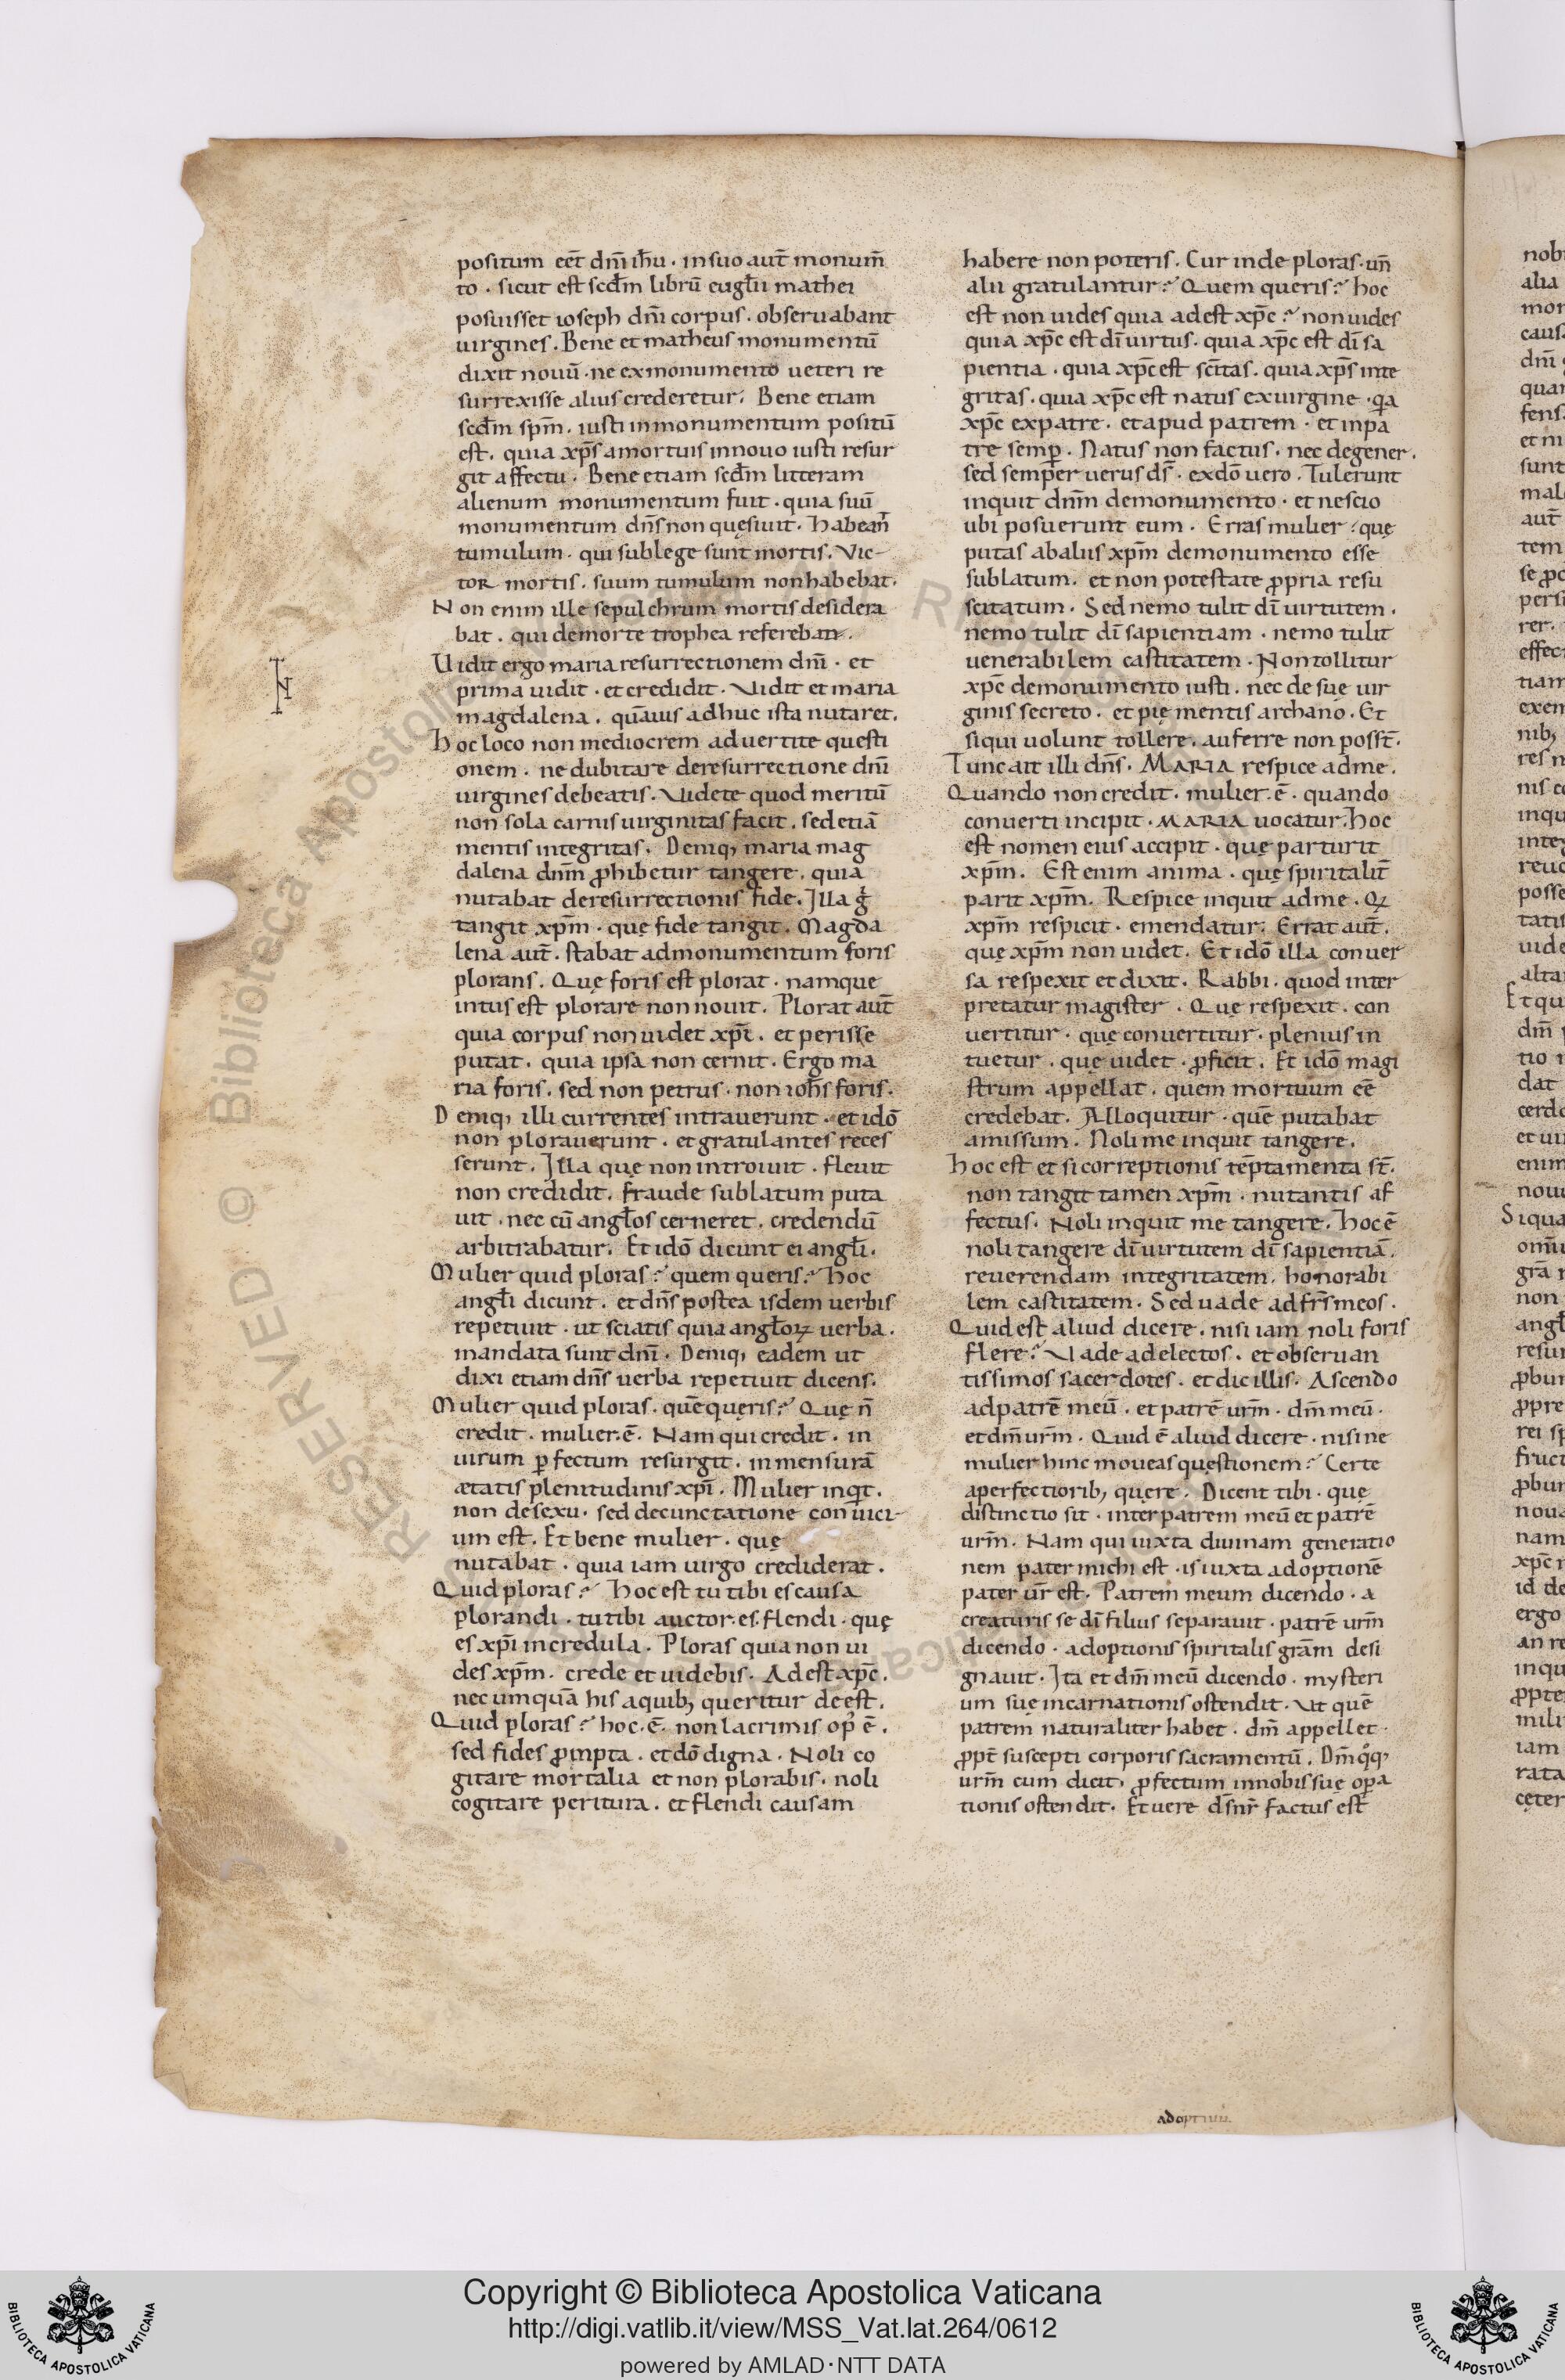 positum eēt dn̄i ih̄u · in suo aut̄ monum̄
to · sicut est scd̄m librū eugl̄ii mathei
posuisset ioseph dn̄i corpus · obseruabant
uirgines . Bene et matheus monumentū
dixit nouū · ne ex monumento ueteri re
surrexisse alius crederetur . Bene etiam
scd̄m sp̄m . iusti in monumentum positū
est . quia xp̄s a mortuis in nouo iusti resur
git affectu . Bene etiam scd̄m litteram
alienum monumentum fuit . quia suū
monumentum dn̄s non quęsiuit . Habean̄t
tumulum . qui sub lege sunt mortis . Vic-
tor mortis . suum tumulum non habebat .
Non enim ille sepulchrum mortis desidera
bat . qui de morte trophea referebat .
Uidit ergo maria resurrectionem dn̄i . et
prima uidit . et credidit . Vidit et maria
magdalena . quāuis adhuc ista nutaret .
Hoc loco non mediocrem aduertite questi
onem . ne dubitare de resurrectione dn̄i
uirgines debeatis . Videte quod meritū
non sola carnis uirginitas facit . sed etiā
mentis integritas . Deniq; maria mag
dalena dn̄m ꝓhibetur tangere . quia
nutabat de resurrectionis fide . Illa g̊
tangit xp̄m . quę fide tangit . Magda
lena aut̄ . stabat ad monumentum foris
plorans . Quę foris est plorat . namque
intus est plorare non nouit . Plorat aut̄
quia corpus non uidet xp̄i . et perisse
putat . quia ipsa non cernit . Ergo ma
ria foris . sed non petrus . non ioh̄s foris .
Deniq; illi currentes intrauerunt . et idō
non plorauerunt . et gratulantes reces
serunt . Illa quę non introiuit . fleuit
non credidit . fraude sublatum puta
uit . nec cū angl̄os cerneret . credendū
arbitrabatur . Et idō dicunt ei angl̄i .
Mulier quid ploras? quem queris? Hoc
angl̄i dicunt . et dn̄s postea isdem uerbis
repetiuit . ut sciatis quia angl̄oꝝ uerba .
mandata sunt dn̄i . Deniq; eadem ut
dixi etiam dn̄s uerba repetiuit dicens .
Mulier quid ploras . quē quęris? Quę n̄
credit . mulier . ē . Nam qui credit . in
uirum ꝑfectum resurgit . in mensurā
ætatis plenitudinis xp̄i . Mulier inq̇t .
non de sexu . sed de cunctatione conuici-
um est . Et bene mulier . quę
nutabat . quia iam uirgo crediderat .
Quid ploras? Hoc est tu tibi es causa
plorandi . tu tibi auctor . es . flendi . quę
es xp̄i incredula . Ploras quia non ui
des xp̄m . crede et uidebis . Adest xp̄c .
nec umquā his a quib; queritur deest .
Quid ploras? hoc . ē . non lacrimis op̾ ē .
sed fides ꝓmpta . et dō digna . Noli co
gitare mortalia et non plorabis . noli
cogitare peritura . et flendi causam
habere non poteris . Cur inde ploras . un̄
alii gratulantur? Quem queris? hoc
est non uides quia adest xp̄c? non uides
quia xp̄c est dī uirtus . quia xp̄c est dī sa
pientia . quia xp̄c est sc̄itas . quia xp̄s inte
gritas . quia xp̄c est natus ex uirgine . qa
xp̄c ex patre . et apud patrem . et in pa
tre semꝑ . Natus non factus . nec degener .
sed semper uerus ds̄ . ex dō uero . Tulerunt
inquit dn̄m de monumento . et nescio
ubi posuerunt eum . Erras mulier . quę
putas ab aliis xp̄m de monumento esse
sublatum . et non potestate ꝓpria resu
scitatum . Sed nemo tulit dī uirtutem .
nemo tulit dī sapientiam . nemo tulit
uenerabilem castitatem . Non tollitur
xp̄c de monumento iusti . nec de suę uir
ginis secreto . et pię mentis archano . Et
si qui uolunt tollere . auferre non poss̄t .
Tunc ait illi dn̄s . MARIA respice ad me .
Quando non credit . mulier . ē . quando
conuerti incipit . MARIA uocatur . Hoc
est nomen eius accipit . quę parturit
xp̄m . Est enim anima . quę spiritalit̄
parit xp̄m . Respice inquit ad me . Qꝝ
xp̄m respicit . emendatur . Errat aut̄ .
quę xp̄m non uidet . Et idō illa conuer
sa respexit et dixit . Rabbi . quod inter
pretatur magister . Quę respexit . con
uertitur . quę conuertitur . plenius in
tuetur . quę uidet . ꝓficit . Et idō magi
strum appellat . quem mortuum eē
credebat . Alloquitur . quē putabat
amissum . Noli me inquit tangere .
Hoc est et si correptionis tēptamenta st̄ .
non tangit tamen xp̄m . nutantis af
fectus . Noli inquit me tangere . Hoc ē
noli tangere dī uirtutem dī sapientiā .
reuerendam integritatem . honorabi
lem castitatem . Sed uade ad fr̄s meos .
Quid est aliud dicere . nisi iam noli foris
flere? Vade ad electos . et obseruan
tissimos sacerdotes . et dic illis . Ascendo
ad patrē meū . et patrē ur̄m . dm̄ meū .
et dm̄ ur̄m . Quid ē aliud dicere . nisi ne
mulier hinc moueas quęstionem? Certe
a perfectiorib; quęre . Dicent tibi . quę
distinctio sit . inter patrem meū et patrē
ur̄m . Nam qui iuxta diuinam generatio
nem pater michi est . is iuxta adoptionē
pater ur̄ est . Patrem meum dicendo . a
creaturis se dī filius separauit . patrē ur̄m
dicendo . adoptionis spiritalis grām desi
gnauit . Ita et dm̄ meū dicendo . mysteri
um suę incarnationis ostendit . Vt quē
patrem naturaliter habet . dm̄ appellet .
ꝓpt̄ suscepti corporis sacramentū . Dm̄ qq;
ur̄m cum dicit . ꝓfectum in nobis suę oꝑa
tionis ostendit . Et uere ds̄ nr̄ factus est
adoptiuu
Copyright © Biblioteca Apostolica Vaticana
http://digi.vatlib.it/view/MSS_Vat.lat.264/0612
powered by AMLAD·NTT DATA